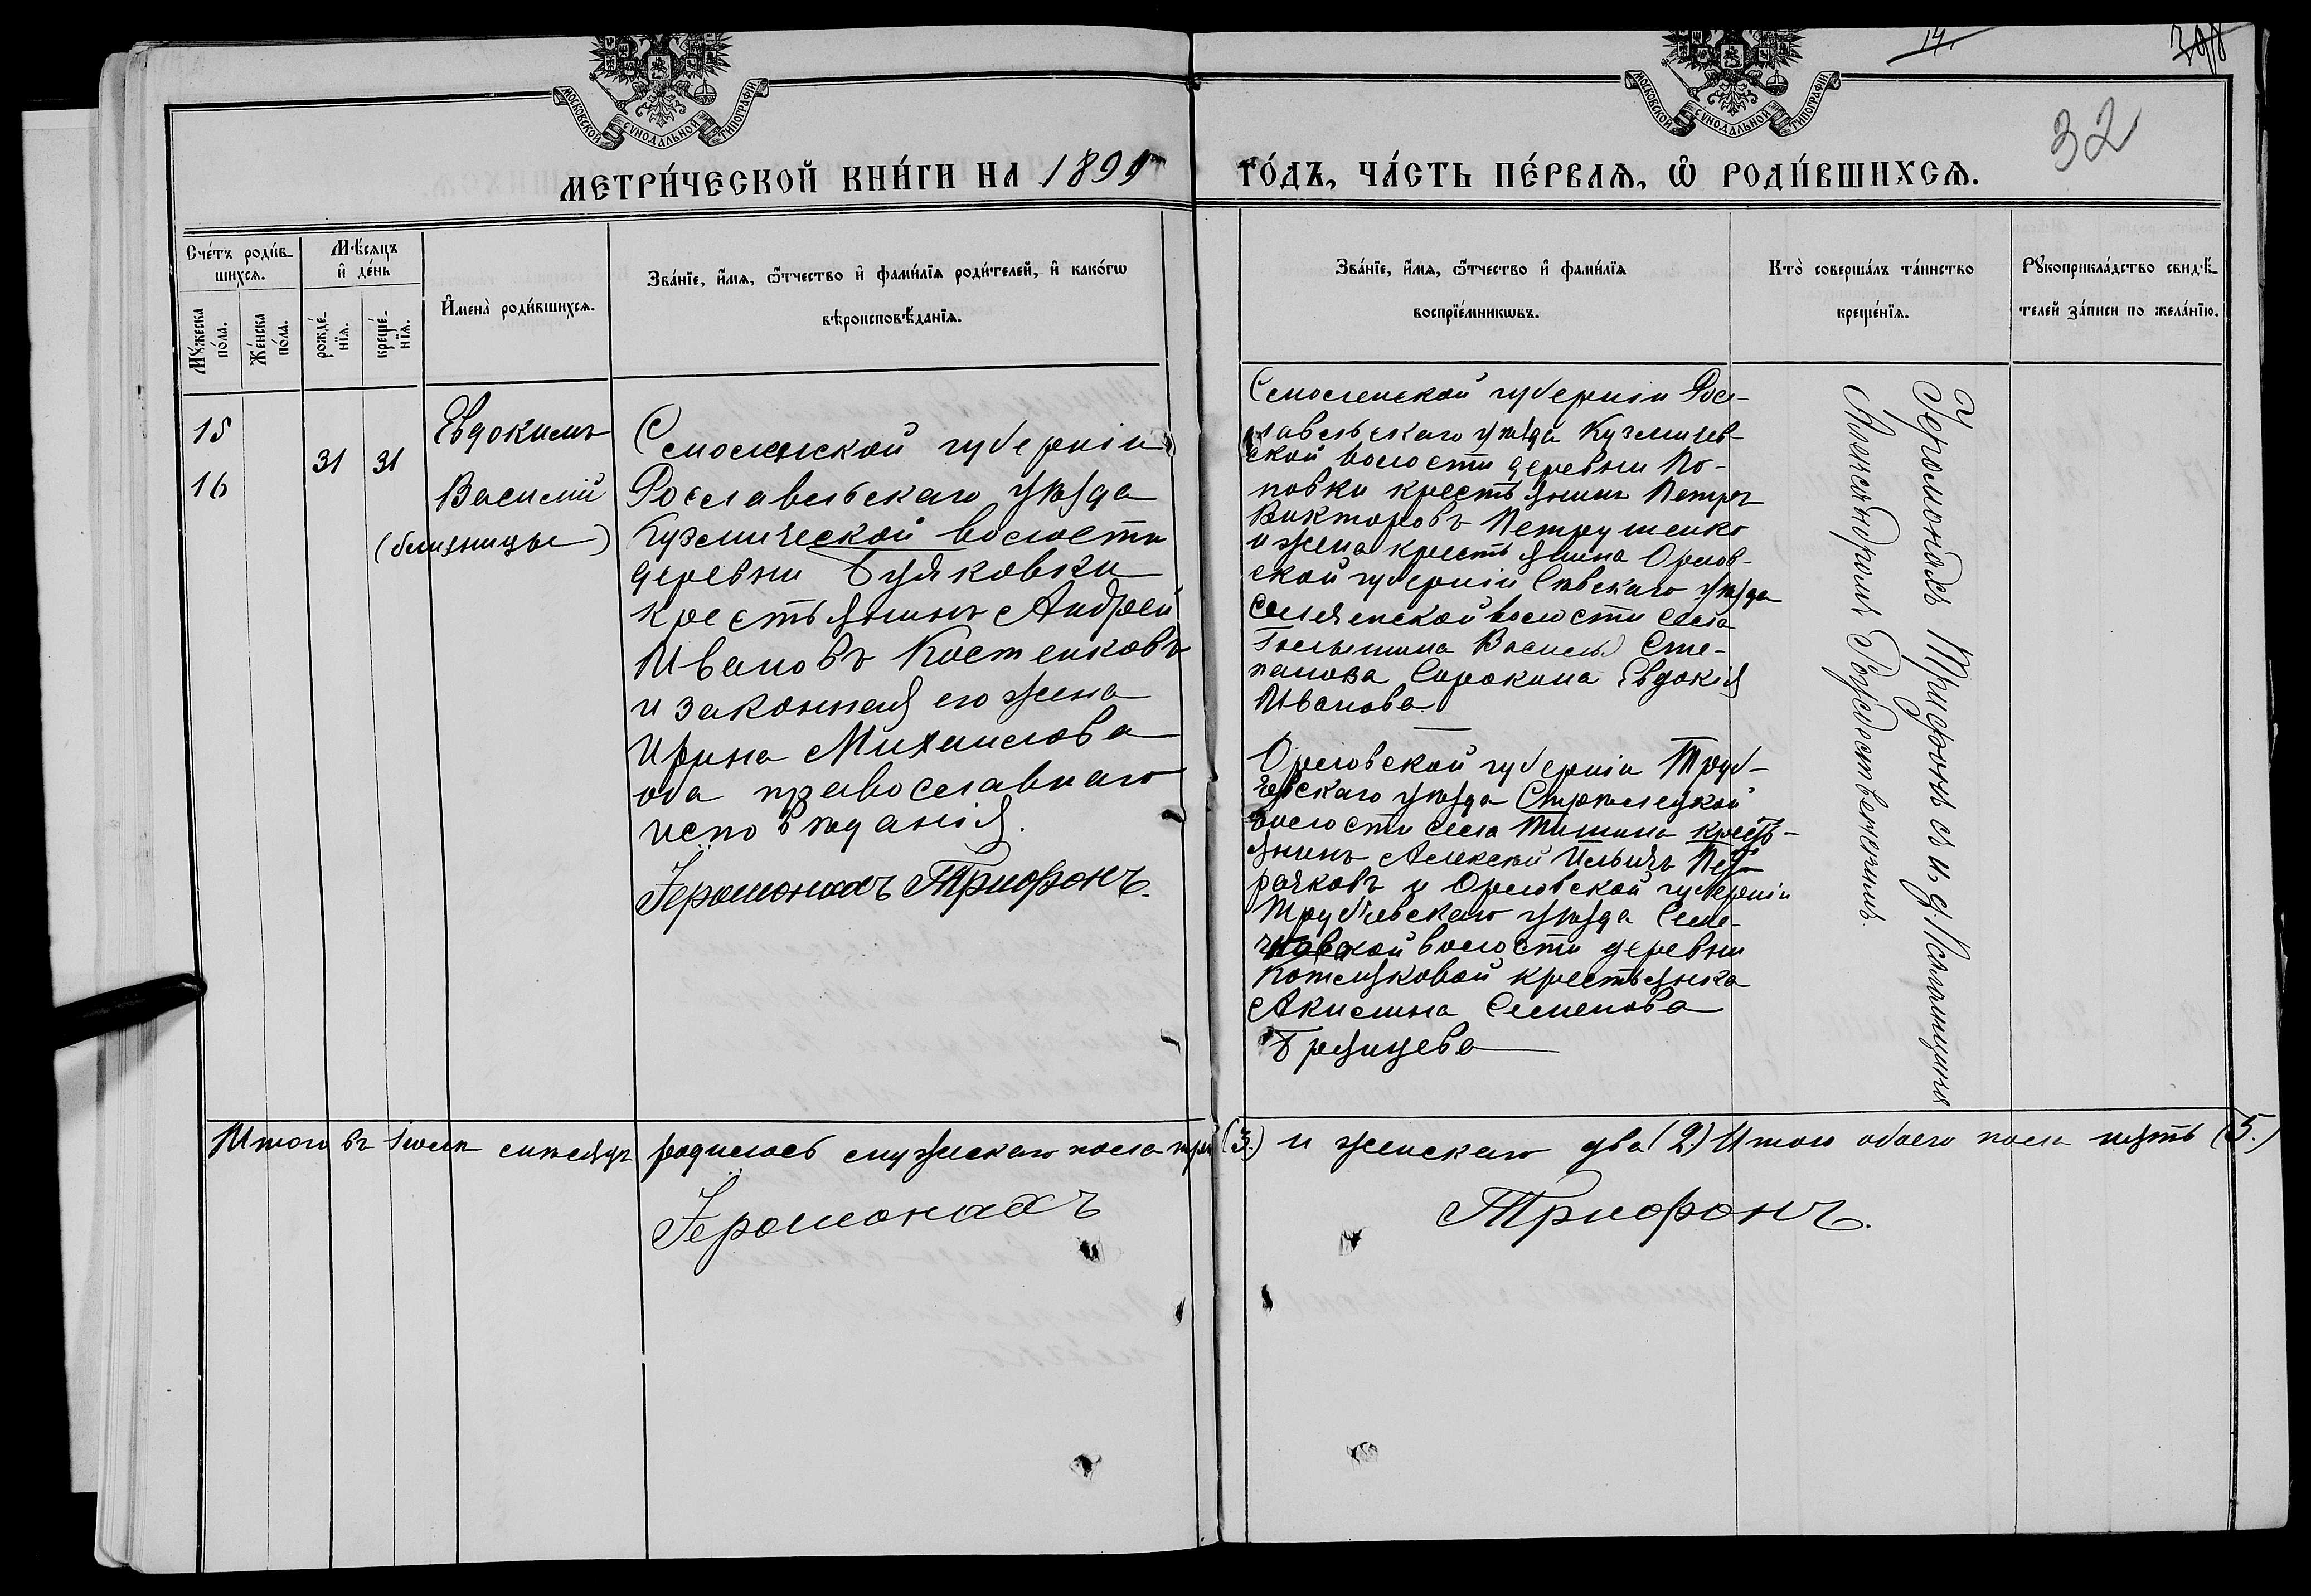 14.
308
32
МОСКОВСКОЙ СѴНОДАЛЬНОЙ ТИПОГРАФІИ
МОСКОВСКОЙ СѴНОДАЛЬНОЙ ТИПОГРАФІИ
МЕТРИ́ЧЕСКОЙ КНИ́ГИ НА 1899 ГО́ДЪ, ЧА́СТЬ ПЕ́РВАѦ, Ѡ҆ РОДИ́ВШИХСѦ.
Сче́тъ роди́в-
шихсѧ.
Мꙋ́жеска
по́ла.
Же́нска
по́ла.
Мѣ́сѧцъ
и҆ де́нь
рожде́-
нїѧ.
креще́-
нїѧ.
И҆мена̀ роди́вшихсѧ.
Зва́нїе, и҆́мѧ, ѻ҆́тчество и҆ фами́лїѧ роди́телей, и҆ како́гѡ
вѣроисповѣ́данїѧ.
Зва́нїе, и҆́мѧ, ѻ҆́тчество и҆ фами́лїѧ
воспрїе́мникѡвъ.
Кто̀ соверша́лъ та́инство
креще́нїѧ.
Рꙋкоприкла́дство свидѣ́-
телей за́писи по жела́нїю.
15
16
31 31
Евдокимъ
Василій
(близницы)
Смоленской губерніи
Рославльскаго уѣзда
Кузмической волости
деревни Буяковки
крестьянинъ Андрей
Ивановъ Костенковъ
и законная его жена
Ирина Михаилова
оба православнаго
исповѣданія.
Іеромонахъ Трифонъ.
Смоленской губерніи Рос-
лавльскаго уѣзда Кузмичев-
ской волости деревни По-
повки крестьянинъ Петръ
Викторовъ Петрушенко
и жена крестьянина Орлов-
ской губерніи Сѣвскаго уѣзда
волости села
Василія Сте-
панова Сорокина Евдокія
Иванова
Орловской губерніи Труб-
чевскаго уѣзда
волости села Тишина кресть-
янинъ Алексѣй Ильичъ
и Орловской губерніи
Трубчевскаго уѣзда Семе-
волости деревни
крестьянка
Акилина Семенова
Іеромонахъ Трифонъ съ и. д. псаломщика
Александромъ Рождественскимъ.
Итого въ Іюлѣ мѣсяцѣ родилось мужескаго пола три (3.) и женскаго два (2) Итого обоего пола пять (5.)
Іеромонахъ Трифонъ.